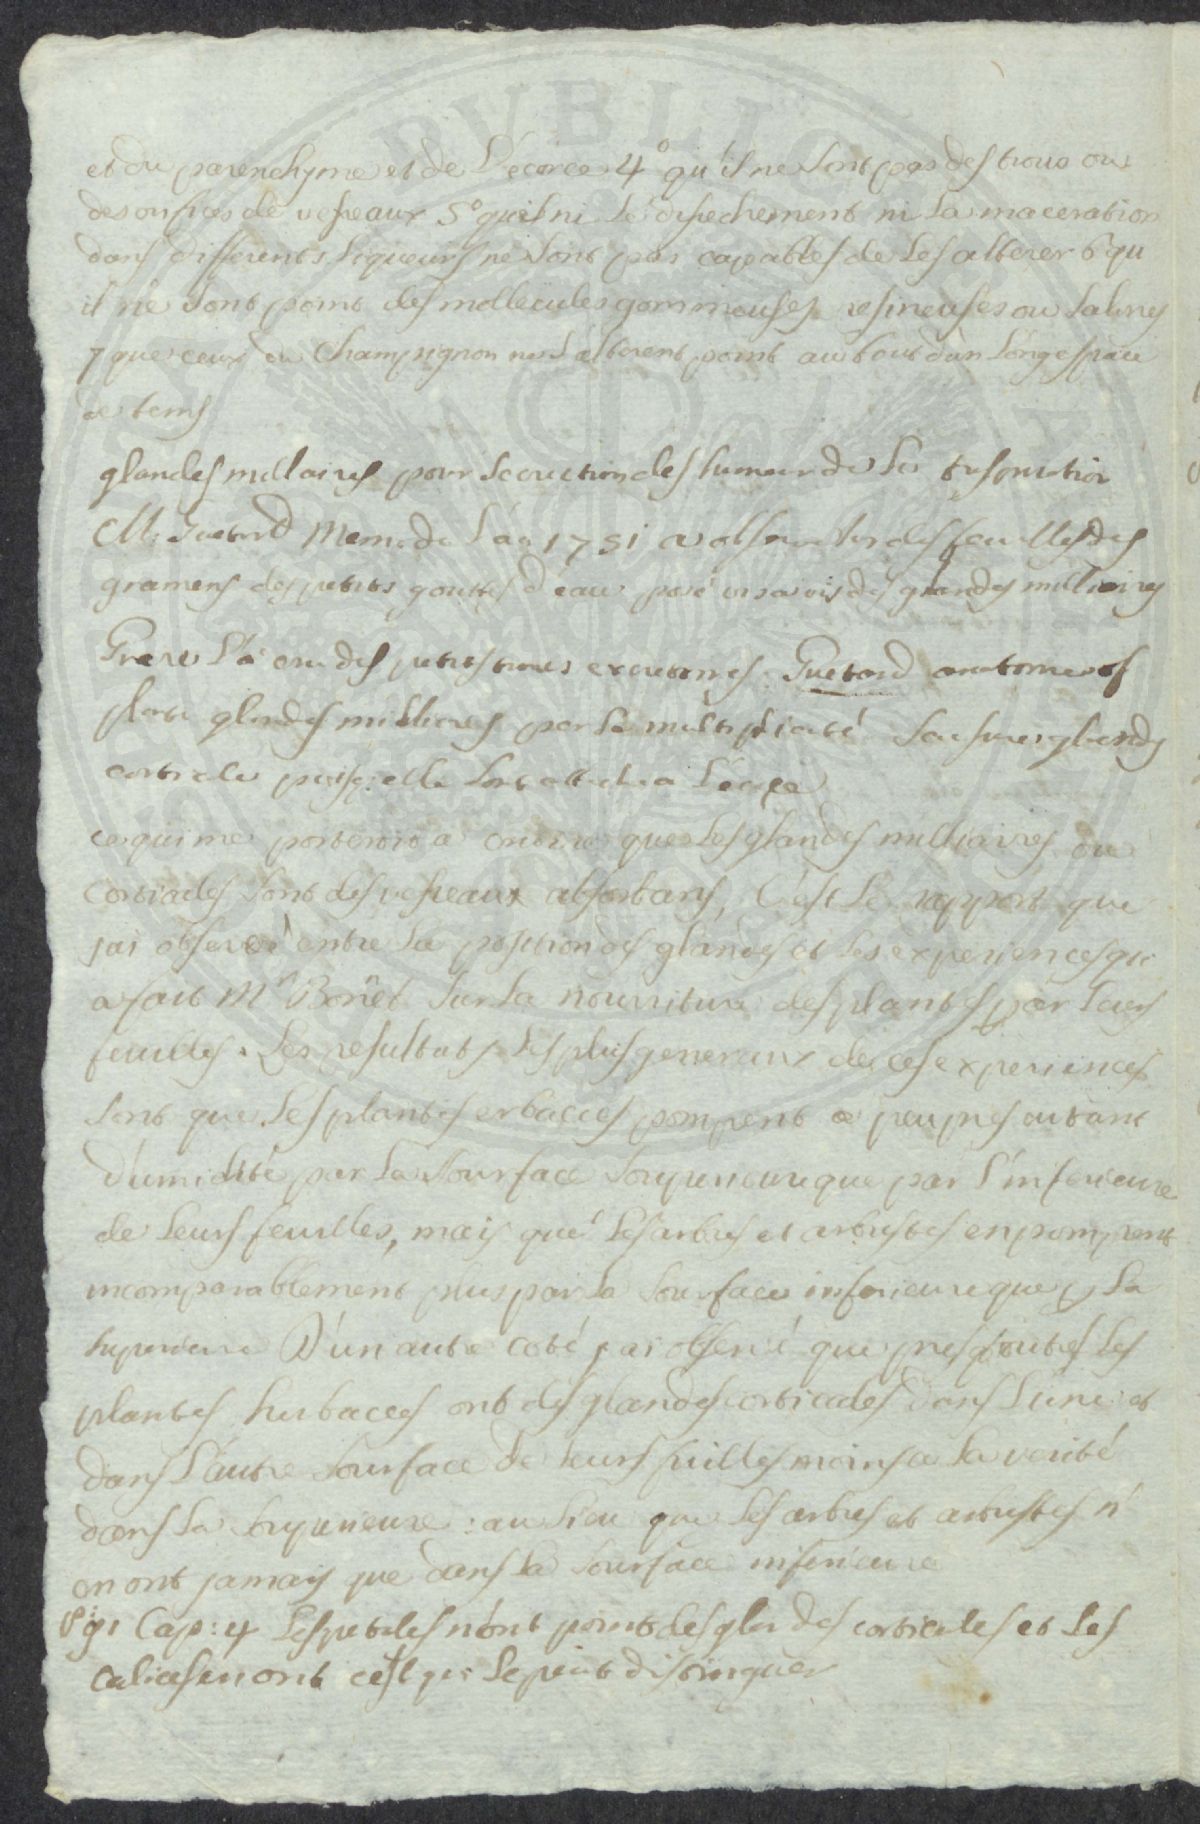 et du parenchyme et de L'écorce 4° qu'il ne sont pas des trous ou
des orifices de vesseaux 5° qu'el ni Le desechement ni La maceration
dans differents Liqueurs ne sont pas capables de Les alterer 6° qu
il ne sont point des mollecules gommeuses resineuses ou salines
7 que ceux du Champignon ne s'alterent point au bout d'un Long espace
de tems
glandes millaires pour secrection des humeur de La traspiration
M. Guetard Mem. de L'an 1751 a observé sur des feuilles des
gramens des petits gouttes d'eau posé vis a vis des glandes milliaires
Grew L'a cru des petits trous excretoires. Guetard
glandes milliaires par La multiplicité glands
corticale puisq. elle sont attaché a L'écorce
ce qui me porteroit a croire que Les glandes milliaires ou
corticales sont des vesseaux absorbans, C'est Le rapport que
j'ai observé entre La position des glandes et Les experiences qu
a fait Mr Bonet sur La nourriture des plantes par Leurs
feuilles. Les resultats Les plus generaux de ces experiences
sont que Les plantes erbacées pompent a peu pres autant
d'umidité par La sourface superieure que par L'inferieure
de Leurs feuilles, mais que Les arbres et arbustes en pompent
incomparablement plus par La sourface inferieure que p La
superieure D'un autre coté j'ai observé que presq toutes Les
plantes herbacées ont des glandes corticales dans L'une et
dans L'autre sourface de Leurs feuilles moins a La verité
dans La superieure : au Lieu que Les arbres et arbustes n'
en ont jamais que dans La sourface inferieure
Cap: 4 Les petales n'ont point des glandes corticales et Les
calices en ont c'est qui Le peut distinguer